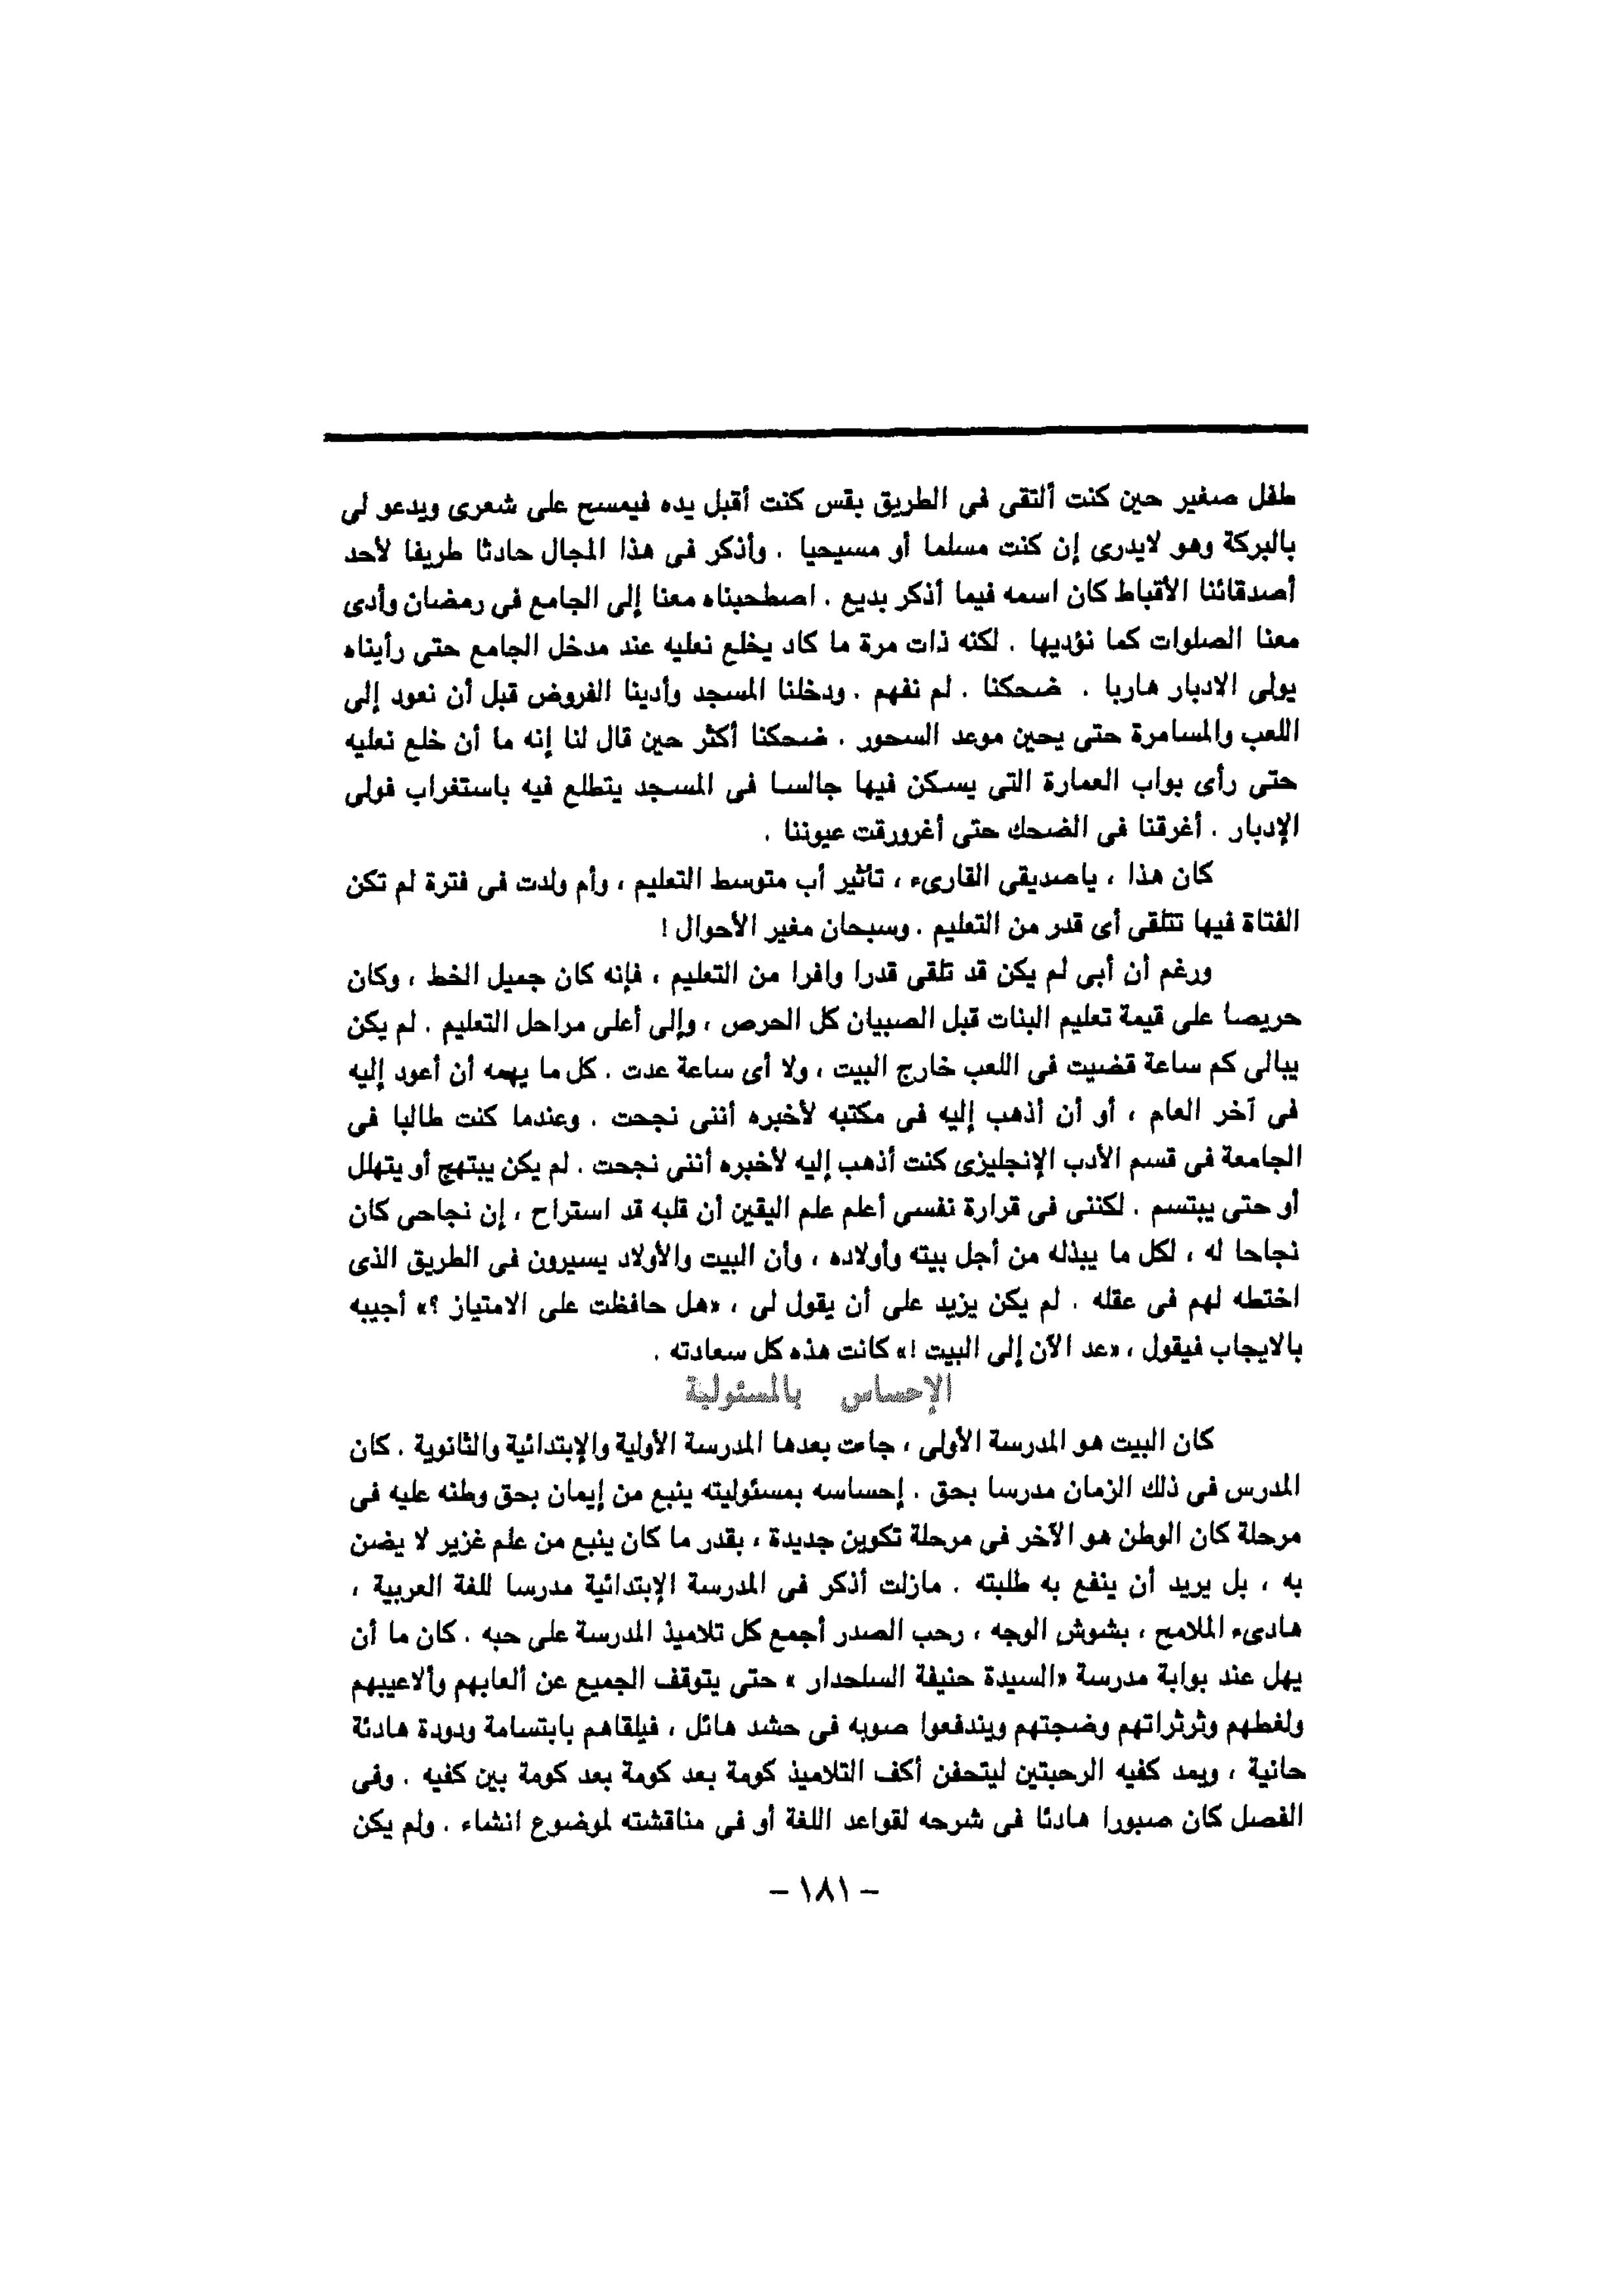 طفل صغير حين كنت ألتقى فى الطريق بقس كنت أقبل يده فيمسح على شعرى ويدعو لى
بالبركة وهو لايدرى إن كنت مسلما أو مسيحيا . وأذكر فى هذا المجال حادثا طريفا لأحد
أصدقائنا الأقباط كان اسمه فيما أذكر بديع . اصطحبناه معنا إلى الجامع فى رمضان وأدى
معنا الصلوات كما نؤديها . لكنه ذات مرة ما كاد يخلع نعليه عند مدخل الجامع حتى رأيناه
يولى الادبار هاربا . ضحكنا . لم نفهم . ودخلنا المسجد وأدينا الفروض قبل أن نعود إلى
اللعب والمسامرة حتى يحين موعد السحور . ضحكنا أكثر حين قال لنا إنه ما أن خلع نعليه
حتى رأى بواب العمارة التى يسكن فيها جالسا فى المسجد يتطلع فيه باستغراب فولى
الإدبار . أغرقنا فى الضحك حتى أغرورقت عيوننا .
كان هذا ، ياصديقى القارىء ، تأثير أب متوسط التعليم ، وأم ولدت فى فترة لم تكن
الفتاة فيها تتلقى أى قدر من التعليم . وسبحان مغير الأحوال !
ورغم أن أبى لم يكن قد تلقى قدرا وافرا من التعليم ، فإنه كان جميل الخط ، وكان
حريصا على قيمة تعليم البنات قبل الصبيان كل الحرص ، وإلى أعلى مراحل التعليم . لم يكن
يبالى كم ساعة قضيت فى اللعب خارج البيت ، ولا أى ساعة عدت . كل ما يهمه أن أعود إليه
فى آخر العام ، أو أن أذهب إليه فى مكتبه لأخبره أننى نجحت . وعندما كنت طالبا فى
الجامعة فى قسم الأدب الإنجليزى كنت أذهب إليه لأخبره أننى نجحت . لم يكن يبتهج أو يتهلل
أو حتى يبتسم . لكننى فى قرارة نفسى أعلم علم اليقين أن قلبه قد استراح ، إن نجاحى كان
نجاحا له ، لكل ما يبذله من أجل بيته وأولاده ، وأن البيت والأولاد يسيرون فى الطريق الذى
اختطه لهم فى عقله . لم يكن يزيد على أن يقول لى ، «هل حافظت على الامتياز ؟» أجيبه
بالايجاب فيقول ، «عد الآن إلى البيت !» كانت هذه كل سعادته .
الإحساس بالمسئولية
كان البيت هو المدرسة الأولى ، جاءت بعدها المدرسة الأولية والإبتدائية والثانوية . كان
المدرس فى ذلك الزمان مدرسا بحق . إحساسه بمسئوليته ينبع من إيمان بحق وطنه عليه فى
مرحلة كان الوطن هو الآخر فى مرحلة تكوين جديدة ، بقدر ما كان ينبع من علم غزير لا يضن
به ، بل يريد أن ينفع به طلبته . مازلت أذكر فى المدرسة الإبتدائية مدرسا للغة العربية ،
هادىء الملامح ، بشوش الوجه ، رحب الصدر أجمع كل تلاميذ المدرسة على حبه . كان ما أن
يهل عند بوابة مدرسة «السيدة حنيفة السلحدار » حتى يتوقف الجميع عن ألعابهم وألاعيبهم
ولغطهم وثرثراتهم وضجتهم ويندفعوا صوبه فى حشد هائل ، فيلقاهم بابتسامة ودودة هادئة
حانية ، ويمد كفيه الرحبتين ليتحفن أكف التلاميذ كومة بعد كومة بعد كومة بين كفيه . وفى
الفصل كان صبورا هادئا فى شرحه لقواعد اللغة أو فى مناقشته لموضوع انشاء . ولم يكن
- ١٨١ -